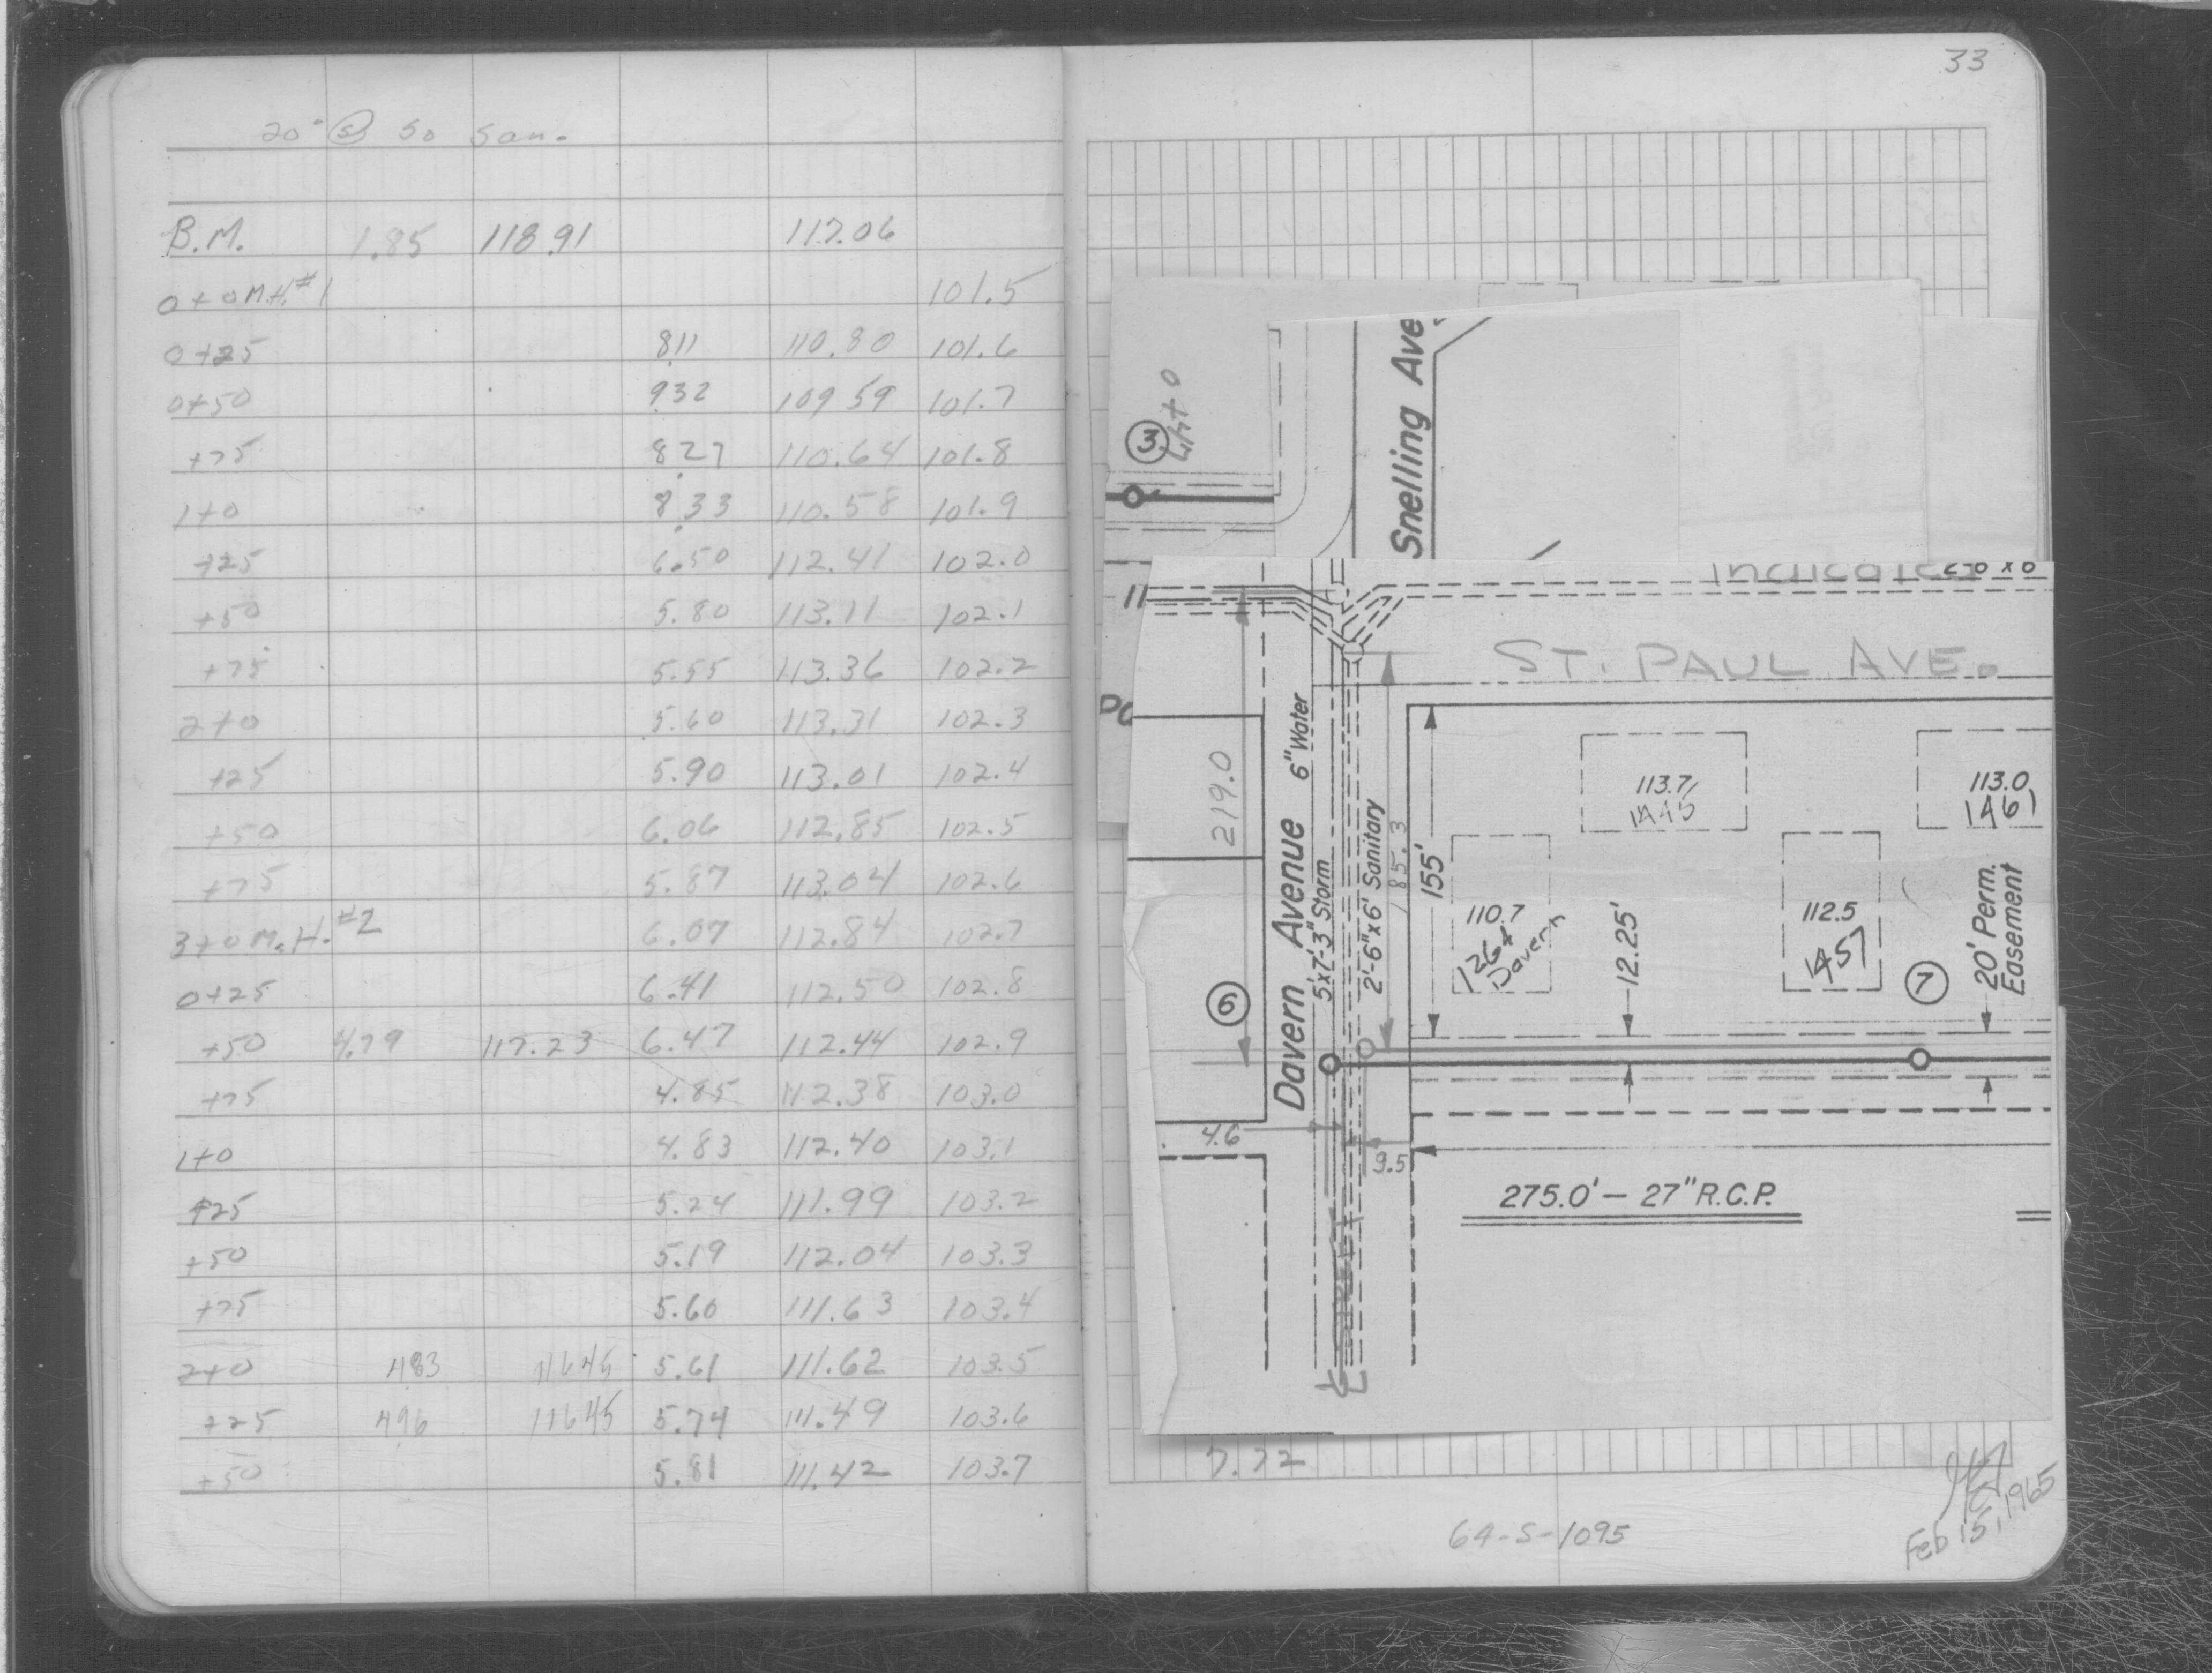 20" @ 50 San.
B.M. 1.85 118.91 117.06
0+0 M.H. #1 101.5
0+25 811 110.80 101.6
0+50 932 109 59 101.7
+75 827 110.64 101.8
1+0 8.33 110.58 101.9
+25 6.50 112.41 102.0
+50 5.80 113.11 102.1
+75 5.55 113.36 102.2
2+0 5.60 113.31 102.3
+25 5.90 113.01 102.4
+50 6.06 112.85 102.5
+75 5.87 113.04 102.6
3+0 M.H. #2 6.07 112.84 102.7
0+25 6.41 112.50 102.8
+50 4.79 117.23 6.47 112.44 102.9
+75 4.85 112.38 103.0
1+0 4.83 112.40 103.1
+25 5.24 111.99 103.2
+50 5.19 112.04 103.3
+75 5.60 111.63 103.4
2+0 483 11645 5.61 111.62 103.5
+25 496 11645 5.74 111.49 103.6
+50 5.81 111.42 103.7
33
3
Snelling Ave
Indicated
11
ST. PAUL AVE.
219.0
Davern Avenue
6" Water
5'x7'-3" Storm
2'-6"x6' Sanitary
185.3
155'
113.7
1445
113.0
1461
110.7
1264
Davern
12.25'
112.5
1457
20' Perm.
Easement
6
7
4.6
9.5
275.0' - 27" R.C.P.
7.72
64-S-1095
Feb 15, 1965